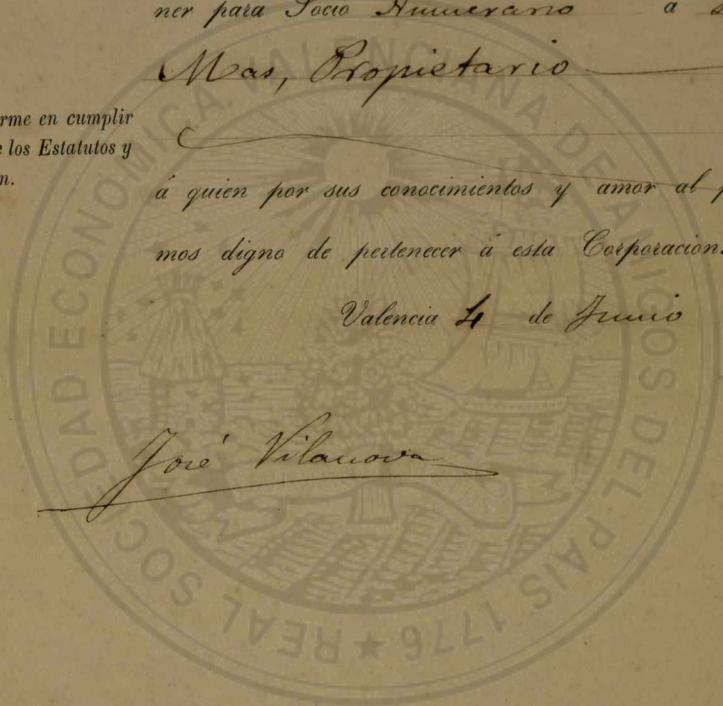 ner para Socio Numerario a
Mas, Propietario
rme en cumplir
e los Estatutos y
n.
á quien por sus conocimientos y amor al p
mos digno de pertenecer á esta Corporación.
Valencia 4 de Junio
José Vilanova
REAL SOCIEDAD ECONOMICA VALENCIANA DE AMIGOS DEL PAIS 1776